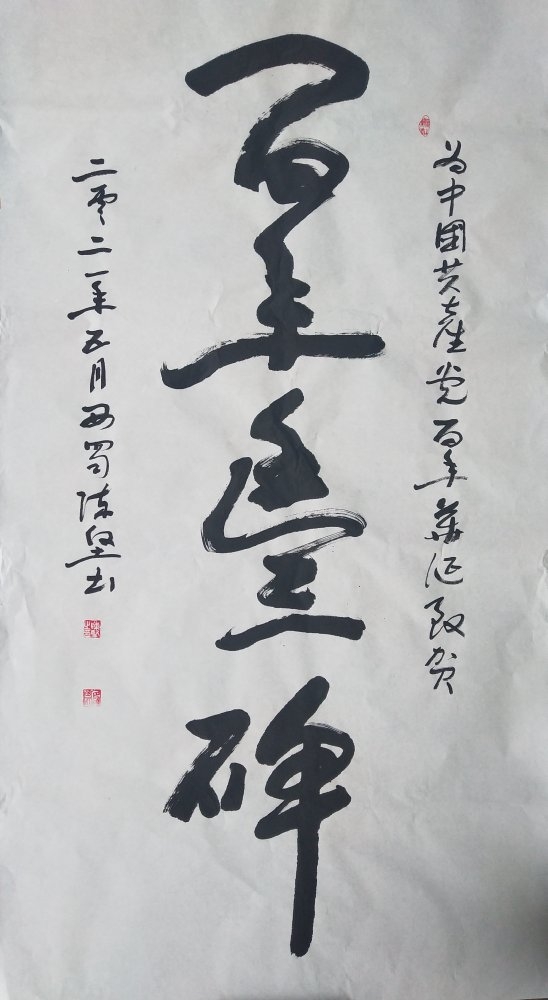 为中國共產党百年華诞致贺
百年豐碑
二零二一年五月西蜀陈坚书